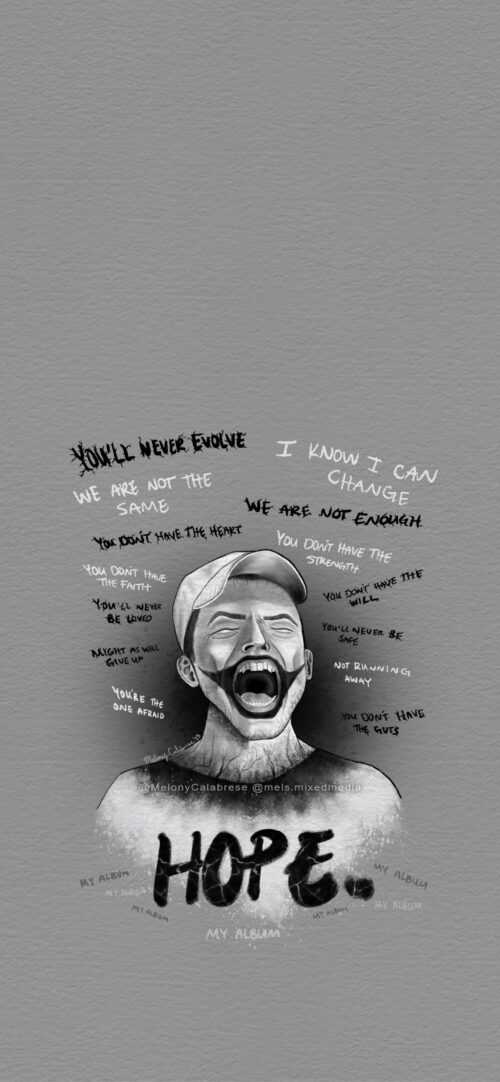 YOU'LL NEVER EVOLVE
I KNOW I CAN
CHANGE
WE ARE NOT THE
SAME
WE ARE NOT ENOUGH
YOU DON'T HAVE THE HEART
YOU DON'T HAVE THE
STRENGTH
YOU DON'T HAVE
THE FAITH
YOU DON'T HAVE THE
WILL
YOU'LL NEVER
BE LOVED
YOU'LL NEVER BE
SAFE
MIGHT AS WELL
GIVE UP
NOT RUNNING
AWAY
YOU'RE THE
ONE AFRAID
YOU DON'T HAVE
THE GUTS
Melony Calabrese
@MelonyCalabrese @mels.mixedmedia
HOPE.
MY ALBUM
MY ALBUM
MY ALBUM
MY ALBUM
MY ALBUM
MY ALBUM
MY ALBUM